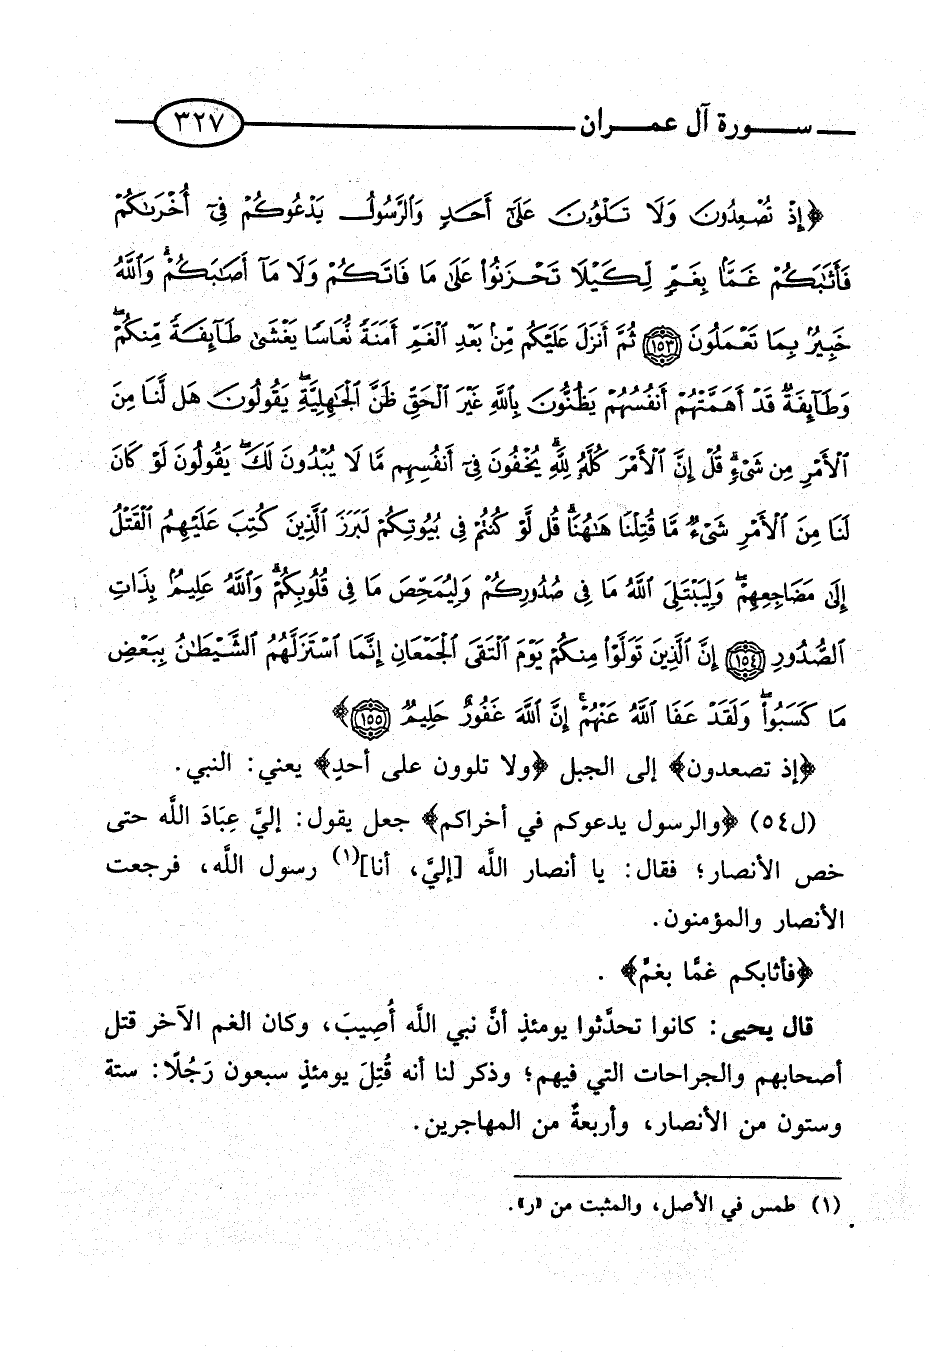 سورة آل عمران ٣٢٧
﴿إِذْ تُصْعِدُونَ وَلَا تَلْوُۥنَ عَلَىٰٓ أَحَدٍ وَٱلرَّسُولُ يَدْعُوكُمْ فِىٓ أُخْرَىٰكُمْ
فَأَثَٰبَكُمْ غَمًّۢا بِغَمٍّ لِّكَيْلَا تَحْزَنُوا۟ عَلَىٰ مَا فَاتَكُمْ وَلَا مَآ أَصَٰبَكُمْ ۗ وَٱللَّهُ
خَبِيرٌۢ بِمَا تَعْمَلُونَ ١٥٣ ثُمَّ أَنزَلَ عَلَيْكُم مِّنۢ بَعْدِ ٱلْغَمِّ أَمَنَةً نُّعَاسًا يَغْشَىٰ طَآئِفَةً مِّنكُمْ ۖ
وَطَآئِفَةٌ قَدْ أَهَمَّتْهُمْ أَنفُسُهُمْ يَظُنُّونَ بِٱللَّهِ غَيْرَ ٱلْحَقِّ ظَنَّ ٱلْجَٰهِلِيَّةِ ۖ يَقُولُونَ هَل لَّنَا مِنَ
ٱلْأَمْرِ مِن شَىْءٍ ۗ قُلْ إِنَّ ٱلْأَمْرَ كُلَّهُۥ لِلَّهِ ۗ يُخْفُونَ فِىٓ أَنفُسِهِم مَّا لَا يُبْدُونَ لَكَ ۖ يَقُولُونَ لَوْ كَانَ
لَنَا مِنَ ٱلْأَمْرِ شَىْءٌ مَّا قُتِلْنَا هَٰهُنَا ۗ قُل لَّوْ كُنتُمْ فِى بُيُوتِكُمْ لَبَرَزَ ٱلَّذِينَ كُتِبَ عَلَيْهِمُ ٱلْقَتْلُ
إِلَىٰ مَضَاجِعِهِمْ ۖ وَلِيَبْتَلِىَ ٱللَّهُ مَا فِى صُدُورِكُمْ وَلِيُمَحِّصَ مَا فِى قُلُوبِكُمْ ۗ وَٱللَّهُ عَلِيمٌۢ بِذَاتِ
ٱلصُّدُورِ ١٥٤ إِنَّ ٱلَّذِينَ تَوَلَّوْا۟ مِنكُمْ يَوْمَ ٱلْتَقَى ٱلْجَمْعَانِ إِنَّمَا ٱسْتَزَلَّهُمُ ٱلشَّيْطَٰنُ بِبَعْضِ
مَا كَسَبُوا۟ ۖ وَلَقَدْ عَفَا ٱللَّهُ عَنْهُمْ ۗ إِنَّ ٱللَّهَ غَفُورٌ حَلِيمٌ ١٥٥﴾
﴿إذ تصعدون﴾ إلى الجبل ﴿ولا تلوون على أحدٍ﴾ يعني: النبي.
(ل٥٤) ﴿والرسول يدعوكم في أخراكم﴾ جعل يقول: إليَّ عِبَادَ اللَّه حتى
خص الأنصار؛ فقال: يا أنصار اللَّه [إليَّ، أنا](١) رسول اللَّه، فرجعت
الأنصار والمؤمنون.
﴿فأثابكم غمًّا بغمٍّ﴾ .
قال يحيى: كانوا تحدَّثوا يومئذٍ أنَّ نبي اللَّه أُصِيبَ، وكان الغم الآخر قتل
أصحابهم والجراحات التي فيهم؛ وذكر لنا أنه قُتِلَ يومئذٍ سبعون رَجُلًا: ستة
وستون من الأنصار، وأربعةٌ من المهاجرين.
(١) طمس في الأصل، والمثبت من «ر».